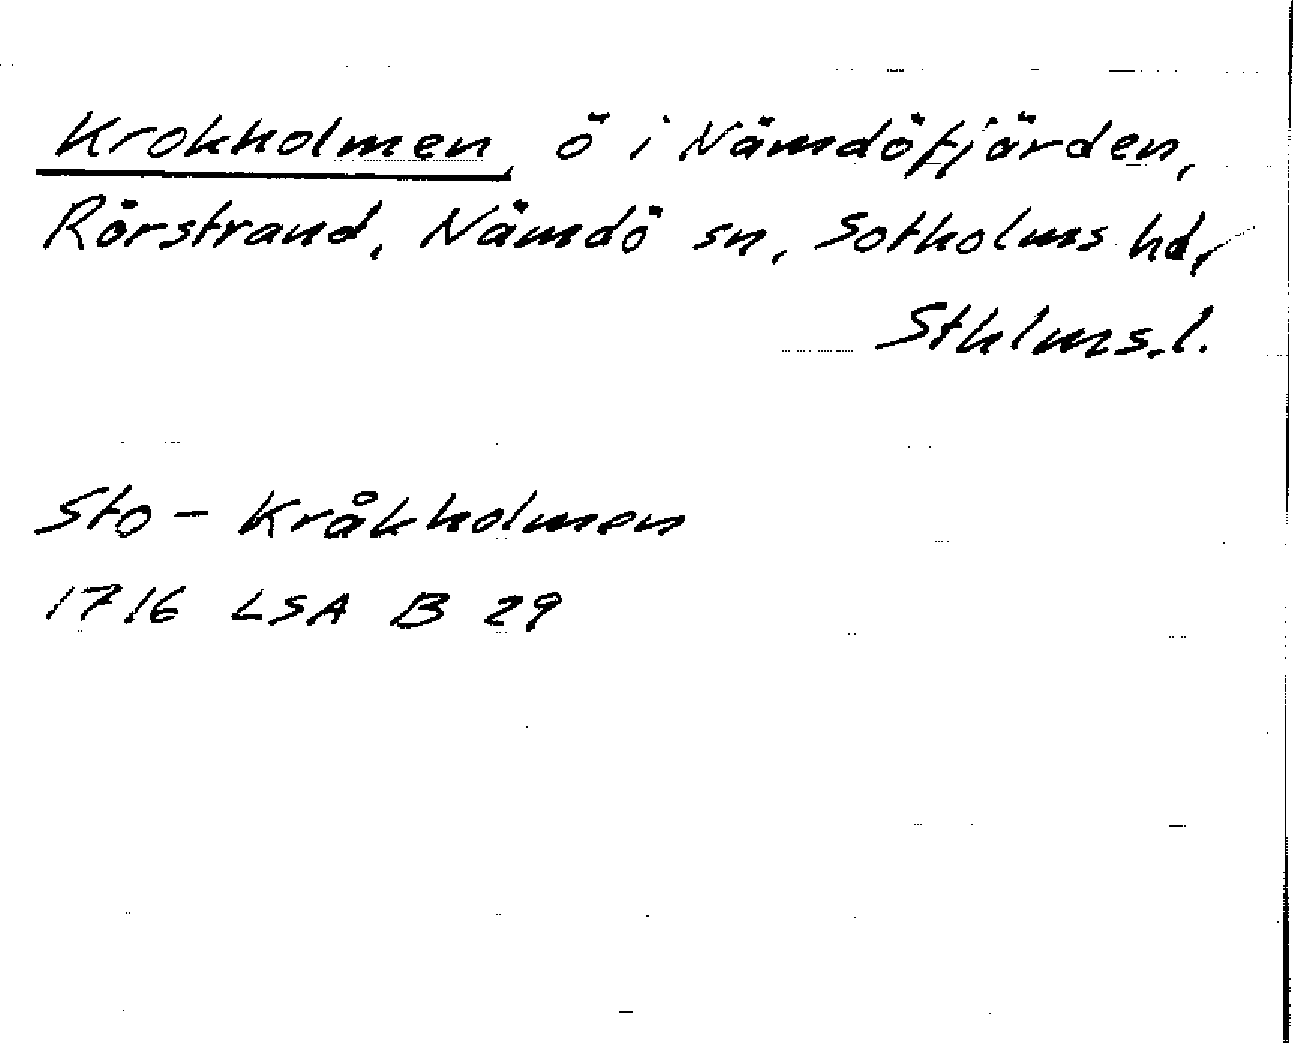 Krokholmen, ö i Nämdöfjärden,
Rörstrand, Nämdö sn, Sotholms hd,
Sthlms.l.
Sto - Kråkholmen
1716 LSA B 29